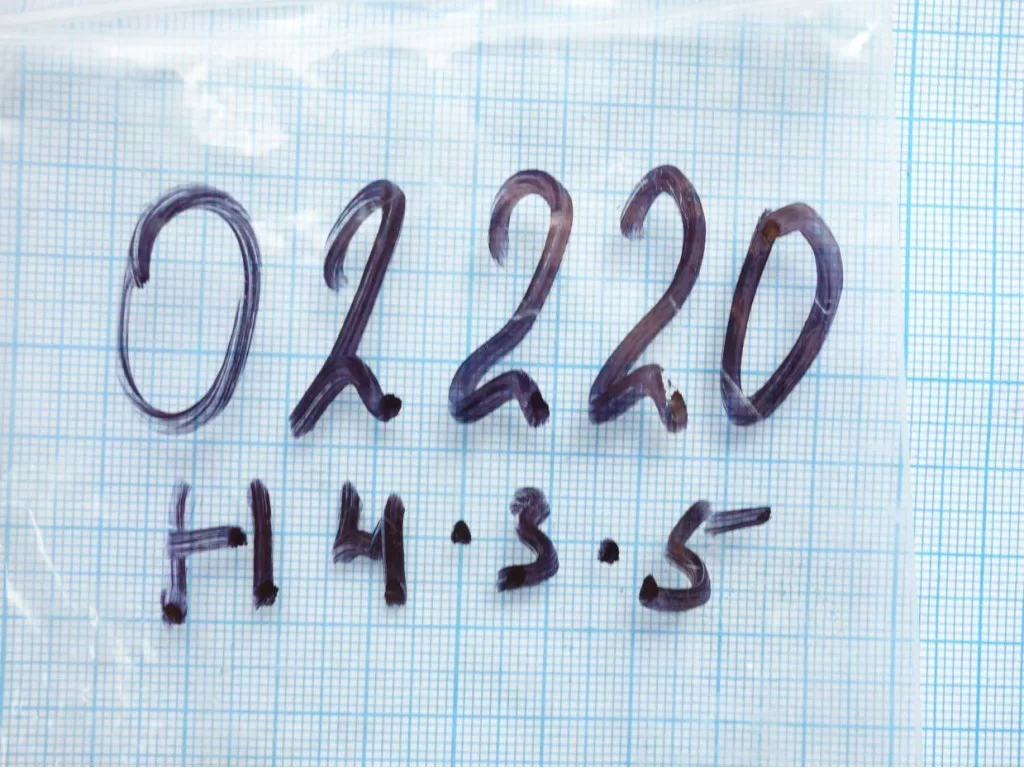 02220
H4.3.5